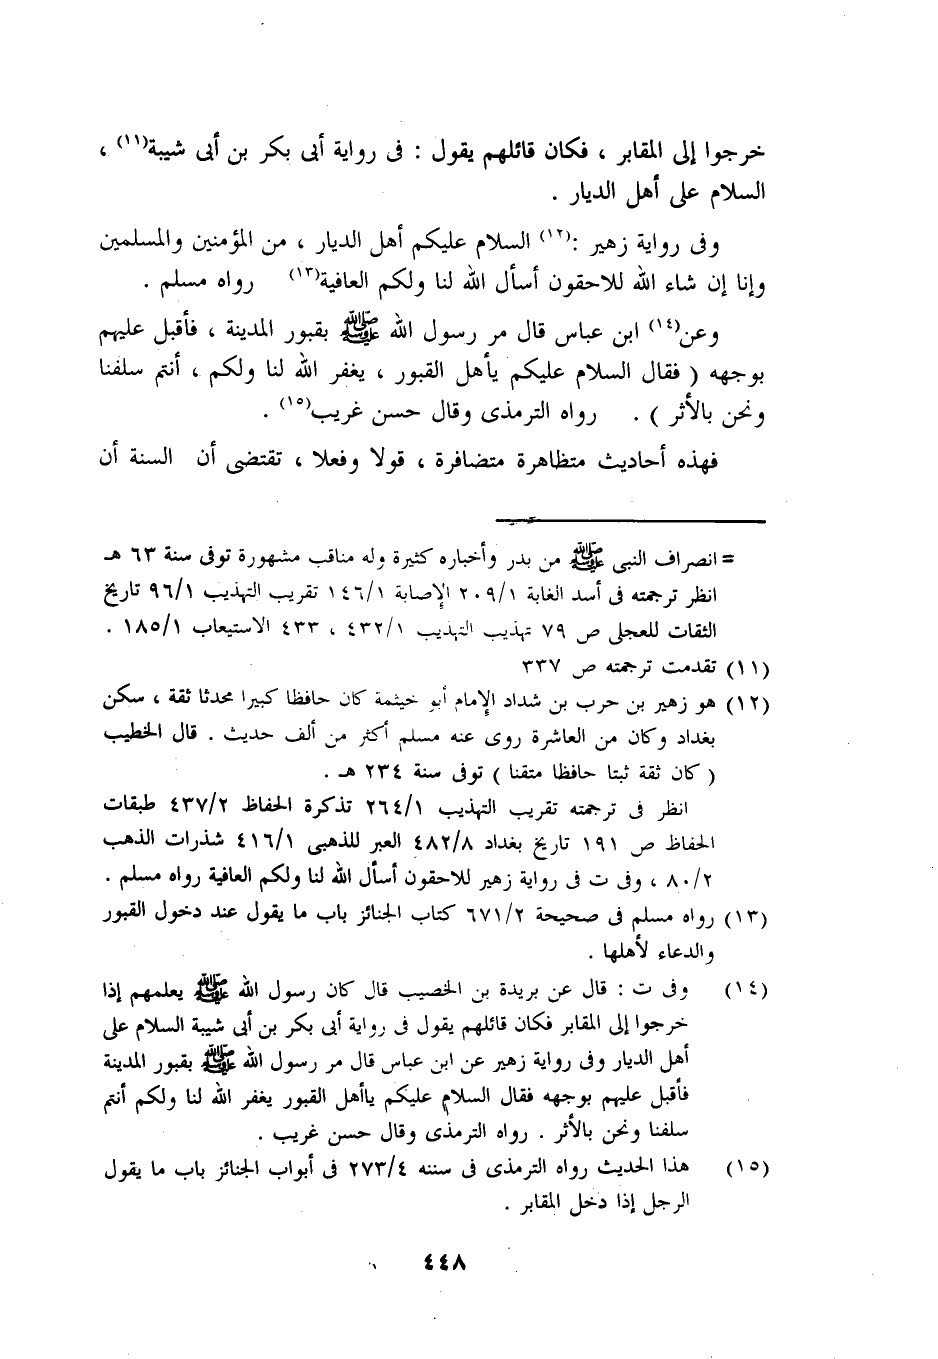 خرجوا إلى المقابر ، فكان قائلهم يقول : فى رواية أبى بكر بن أبى شيبة(١١) ،
السلام على أهل الديار .
وفى رواية زهير :(١٢) السلام عليكم أهل الديار ، من المؤمنين والمسلمين
وإنا إن شاء الله للاحقون أسأل الله لنا ولكم العافية(١٣) رواه مسلم .
وعن(١٤) ابن عباس قال مر رسول الله ﷺ بقبور المدينة ، فأقبل عليهم
بوجهه ( فقال السلام عليكم يأهل القبور ، يغفر الله لنا ولكم ، أنتم سلفنا
ونحن بالأثر ) . رواه الترمذى وقال حسن غريب(١٥) .
فهذه أحاديث متظاهرة متضافرة ، قولا وفعلا ، تقتضى أن السنة أن
= انصراف النبى ﷺ من بدر وأخباره كثيرة وله مناقب مشهورة توفى سنة ٦٣ هـ
انظر ترجمته فى أسد الغابة ٢٠٩/١ الإصابة ١٤٦/١ تقريب التهذيب ٩٦/١ تاريخ
الثقات للعجلى ص ٧٩ تهذيب التهذيب ٤٣٢/١ ، ٤٣٣ الاستيعاب ١٨٥/١ .
(١١) تقدمت ترجمته ص ٣٣٧
(١٢) هو زهير بن حرب بن شداد الإمام أبو خيثمة كان حافظا كبيرا محدثا ثقة ، سكن
بغداد وكان من العاشرة روى عنه مسلم أكثر من ألف حديث . قال الخطيب
( كان ثقة ثبتا حافظا متقنا ) توفى سنة ٢٣٤ هـ .
انظر فى ترجمته تقريب التهذيب ٢٦٤/١ تذكرة الحفاظ ٤٣٧/٢ طبقات
الحفاظ ص ١٩١ تاريخ بغداد ٤٨٢/٨ العبر للذهبى ٤١٦/١ شذرات الذهب
٨٠/٢ ، وفى ت فى رواية زهير للاحقون أسأل الله لنا ولكم العافية رواه مسلم .
(١٣) رواه مسلم فى صحيحة ٦٧١/٢ كتاب الجنائز باب ما يقول عند دخول القبور
والدعاء لأهلها .
(١٤) وفى ت : قال عن بريدة بن الخصيب قال كان رسول الله ﷺ يعلمهم إذا
خرجوا إلى المقابر فكان قائلهم يقول فى رواية أبى بكر بن أبى شيبة السلام على
أهل الديار وفى رواية زهير عن ابن عباس قال مر رسول الله ﷺ بقبور المدينة
فأقبل عليهم بوجهه فقال السلام عليكم ياأهل القبور يغفر الله لنا ولكم أنتم
سلفنا ونحن بالأثر . رواه الترمذى وقال حسن غريب .
(١٥) هذا الحديث رواه الترمذى فى سننه ٢٧٣/٤ فى أبواب الجنائز باب ما يقول
الرجل إذا دخل المقابر .
٤٤٨